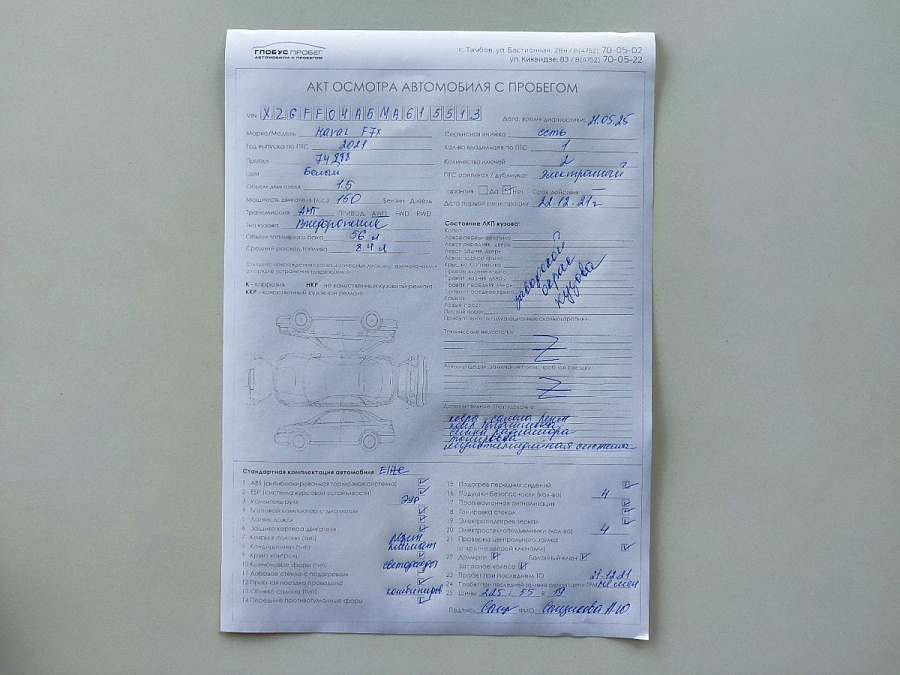 ГЛОБУС ПРОБЕГ
АВТОМОБИЛИ С ПРОБЕГОМ
г. Тамбов, ул. Бастионная, 28н / 8(4752) 70-05-02
ул. Киквидзе, 83 / 8(4752) 70-05-22
АКТ ОСМОТРА АВТОМОБИЛЯ С ПРОБЕГОМ
VIN X2GFF04A5MA615513
Дата, время диагностики 21.05.25
Марка/Модель Haval F7x
Год выпуска по ПТС 2021
Пробег
Цвет Белый
Объем двигателя 1.5
Мощность двигателя (л.с.) 150 Бензин Дизель
Трансмиссия АКП ПРИВОД: AWD FWD RWD
Тип кузова Внедорожник
Объем топливного бака 56 л
Средний расход топлива 8.4 л
Сервисная книжка есть
Кол-во владельцев по ПТС 1
Количество ключей 2
ПТС оригинал / дубликат Электронный
Гарантия Да Нет Срок действия —
Дата первой регистрации 22.12.21г
К - коррозия НКР - не качественный кузовной ремонт
ККР - качественный кузовной ремонт
Состояние ЛКП кузова:
Капот
Левое переднее крыло
Левая передняя дверь
Левая задняя дверь
Левое заднее крыло
Крышка багажника
Правое заднее крыло
Правая задняя дверь
Правая передняя дверь
Правое переднее крыло
Крыша
Левый порог
Правый порог
заводской
окрас
кузова
Технические недостатки:
Z
Z
Дополнительное оборудование:
ковры салона
мультимедийная система
Стандартная комплектация автомобиля Elite
1 ABS (антиблокировочная тормозная система)
2 ESP (система курсовой устойчивости)
3 Усилитель руля ЭУР
4 Бортовой компьютер с дисплеем
5 Датчик дождя
6 Защита картера двигателя
7 Ковры в салоне (тип) резин
8 Кондиционер (тип) климат
9 Круиз контроль
10 Ксеноновые фары (тип) светодиоды
11 Лобовое стекло с подогревом
12 Пробная поездка проведена
13 Обивка салона (тип) комбиниров.
14 Передние противотуманные фары
15 Подогрев передних сидений
16 Подушки безопасности (кол-во) 4
17 Противоугонная сигнализация
18 Тонировка стекол
19 Электроподогрев зеркал
20 Электростеклоподъемники (кол-во) 4
21 Проверка центрального замка
(открытие дверей ключами)
22 Домкрат Балонный ключ
Запасное колесо
23 Пробег при последнем ТО 21.12.21
24 Пробег при последней замене ремня/цепи ГРМ
25 Шины 225 / 55 R 19
Подпись ФИО